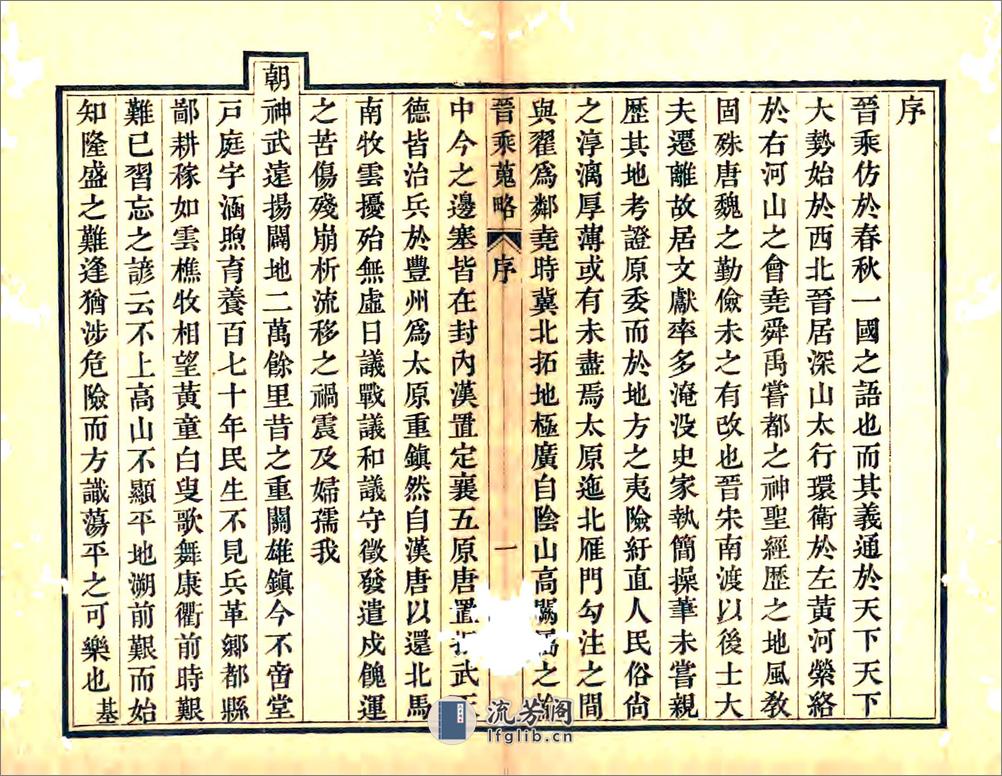 序
晉乘仿於春秋一國之語也而其義通於天下天下
大勢始於西北晉居深山太行環衛於左黃河縈絡
於右河山之會堯舜禹嘗都之神聖經歷之地風敎
固殊唐魏之勤儉未之有改也晉宋南渡以後士大
夫遷離故居文獻率多淹没史家執簡操筆未嘗親
歷其地考證原委而於地方之夷險紆直人民俗尙
之淳漓厚薄或有未盡焉太原迤北雁門勾注之間
與翟爲鄰堯時冀北拓地極廣自陰山高闕
之
晉乘蒐略
序
一
中今之邊塞皆在封內漢置定襄五原唐置振武
德皆治兵於豐州爲太原重鎮然自漢唐以還北馬
南牧雲擾殆無虛日議戰議和議守徵發遣戍餽運
之苦傷殘崩析流移之禍震及婦孺我
朝神武遠揚闢地二萬餘里昔之重關雄鎮今不啻堂
戸庭字涵煦育養百七十年民生不見兵革鄉都縣
鄙耕稼如雲樵牧相望黃童白叟歌舞康衢前時艱
難已習忘之諺云不上高山不顯平地溯前艱而始
知隆盛之難逢猶涉危險而方識蕩平之可樂也基
流芳阁
lfglib.cn